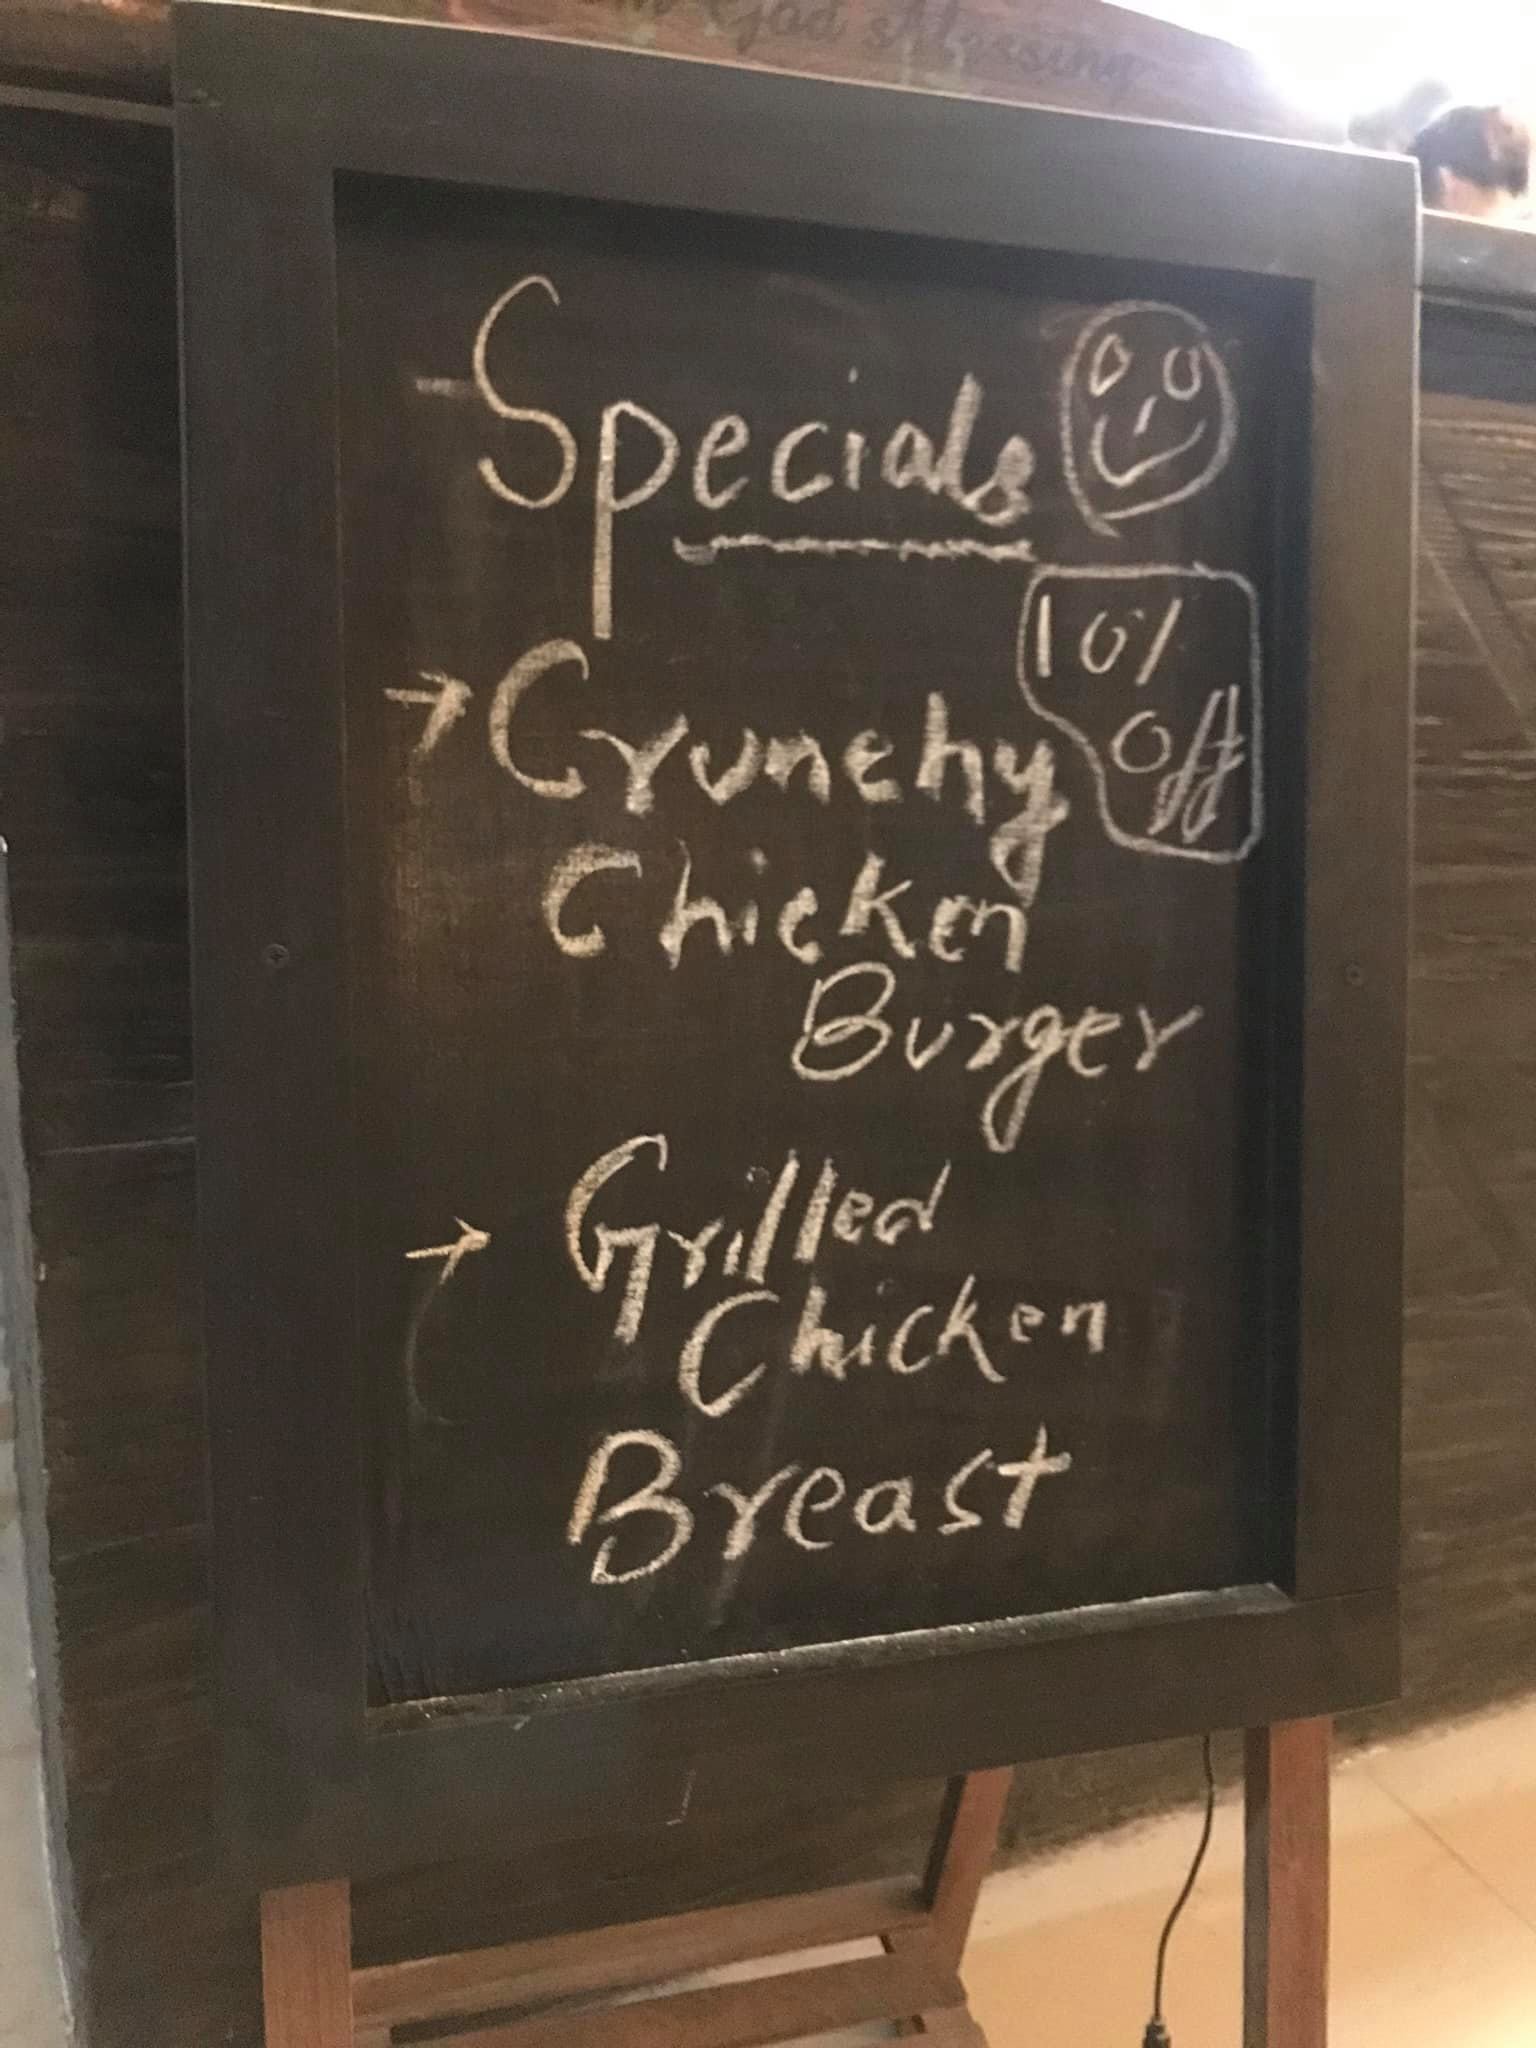 God blessing
Specials
10%
off
→ Crunchy
Chicken
Burger
→ Grilled
Chicken
Breast